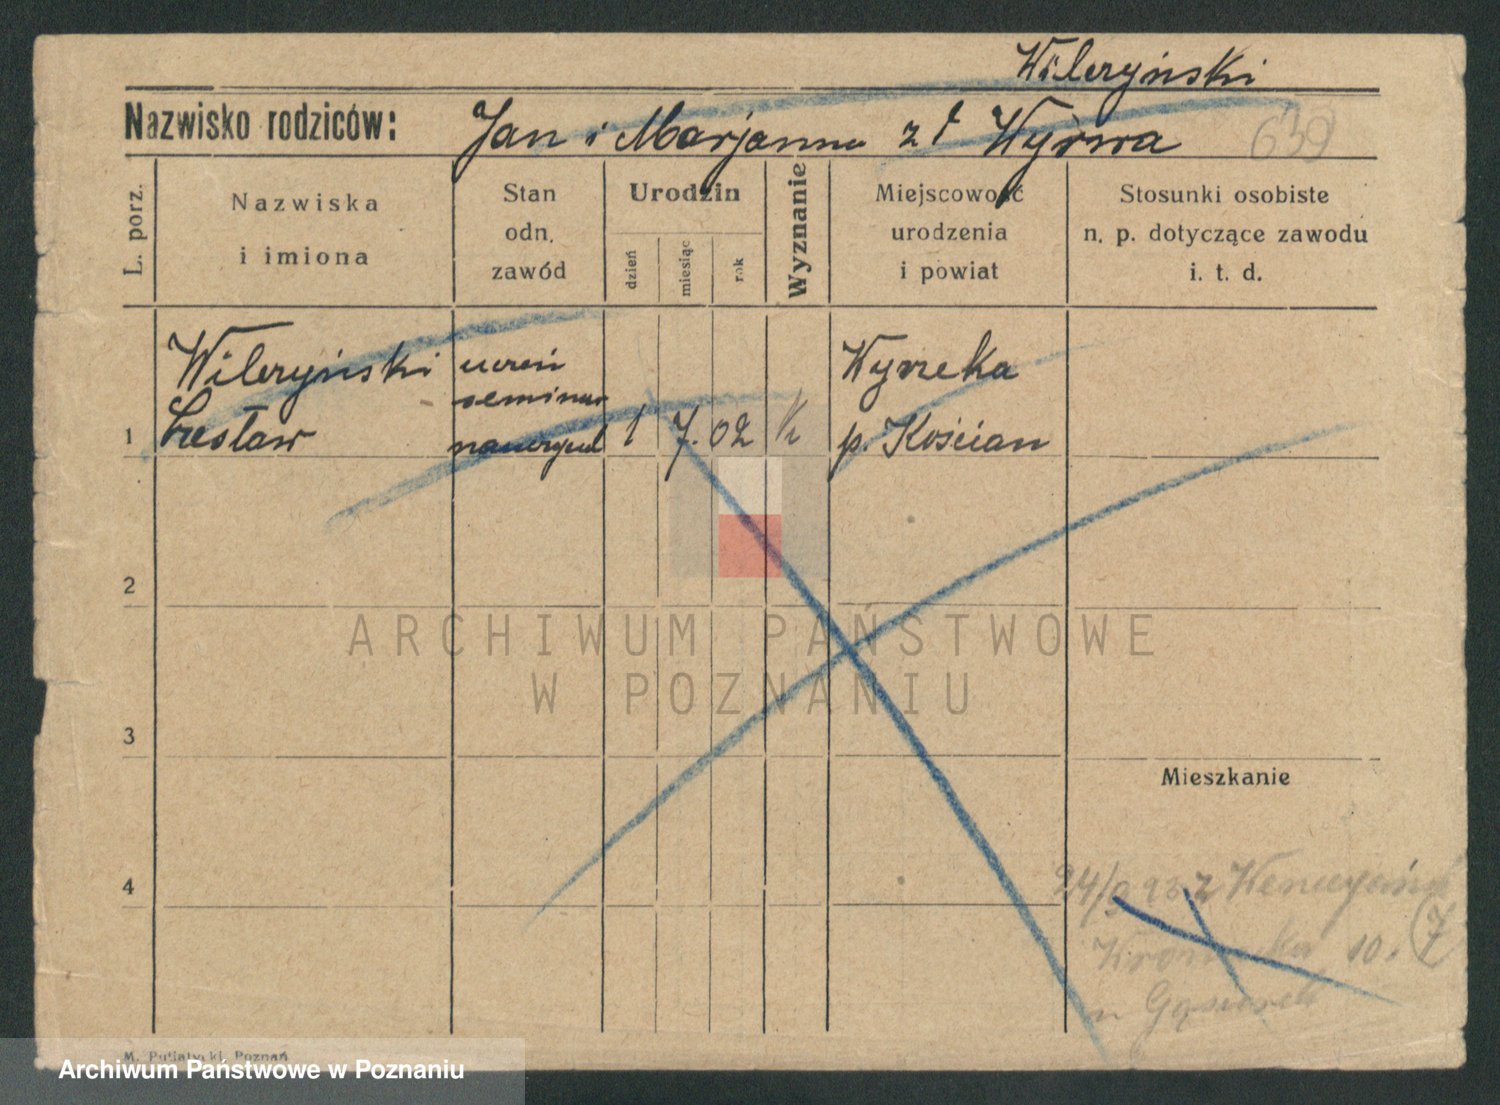 Wilczyński
Nazwisko rodziców: Jan i Marjanna z d Wyrwa 639
L. porz.
Nazwiska
i imiona
Stan
odn.
zawód
Urodzin
dzień
miesiąc
rok
Wyznanie
Miejscowość
urodzenia
i powiat
Stosunki osobiste
n. p. dotyczące zawodu
i. t. d.
1
Wilczyński
Czesław
uczeń
seminar
nauczyciel
1 7. 02 k
Wyrzeka
p. Kościan
2
ARCHIWUM PAŃSTWOWE
W POZNANIU
3
Mieszkanie
4
24/9 23 z
10. 7
M. Putiatycki, Poznań
Archiwum Państwowe w Poznaniu